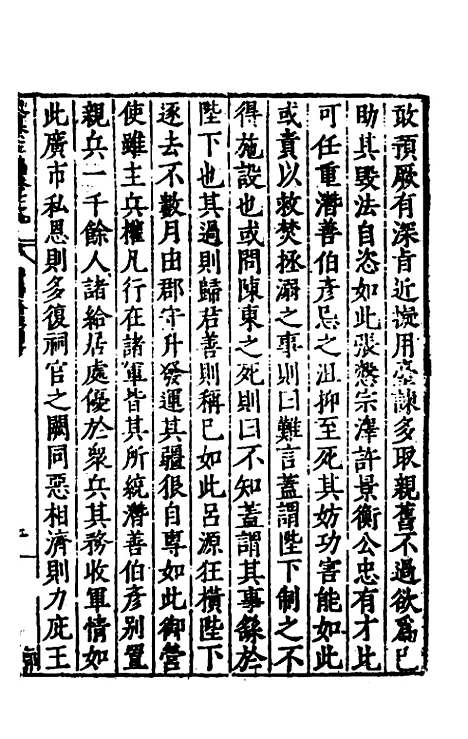 敢預厥有深㫖近擬用臺諫多取親舊不過欲爲己
助其毀法自恣如此張慤宗澤許景衡公忠有才比
可任重潛善伯彥忌之沮抑至死其妨功害能如此
或責以救焚拯溺之事則曰難言蓋謂陛下制之不
得施設也或問陳東之死則曰不知蓋謂其事繇於
陛下也其過則歸君善則稱己如此呂源狂橫陛下
逐去不數月由郡守升發運其彊狠自專如此御營
使雖主兵權凡行在諸軍皆其所統潛善伯彥別置
親兵一千餘人諸給居處優於衆兵其務收軍情如
此廣市私恩則多復祠官之闕同惡相濟則力庇王